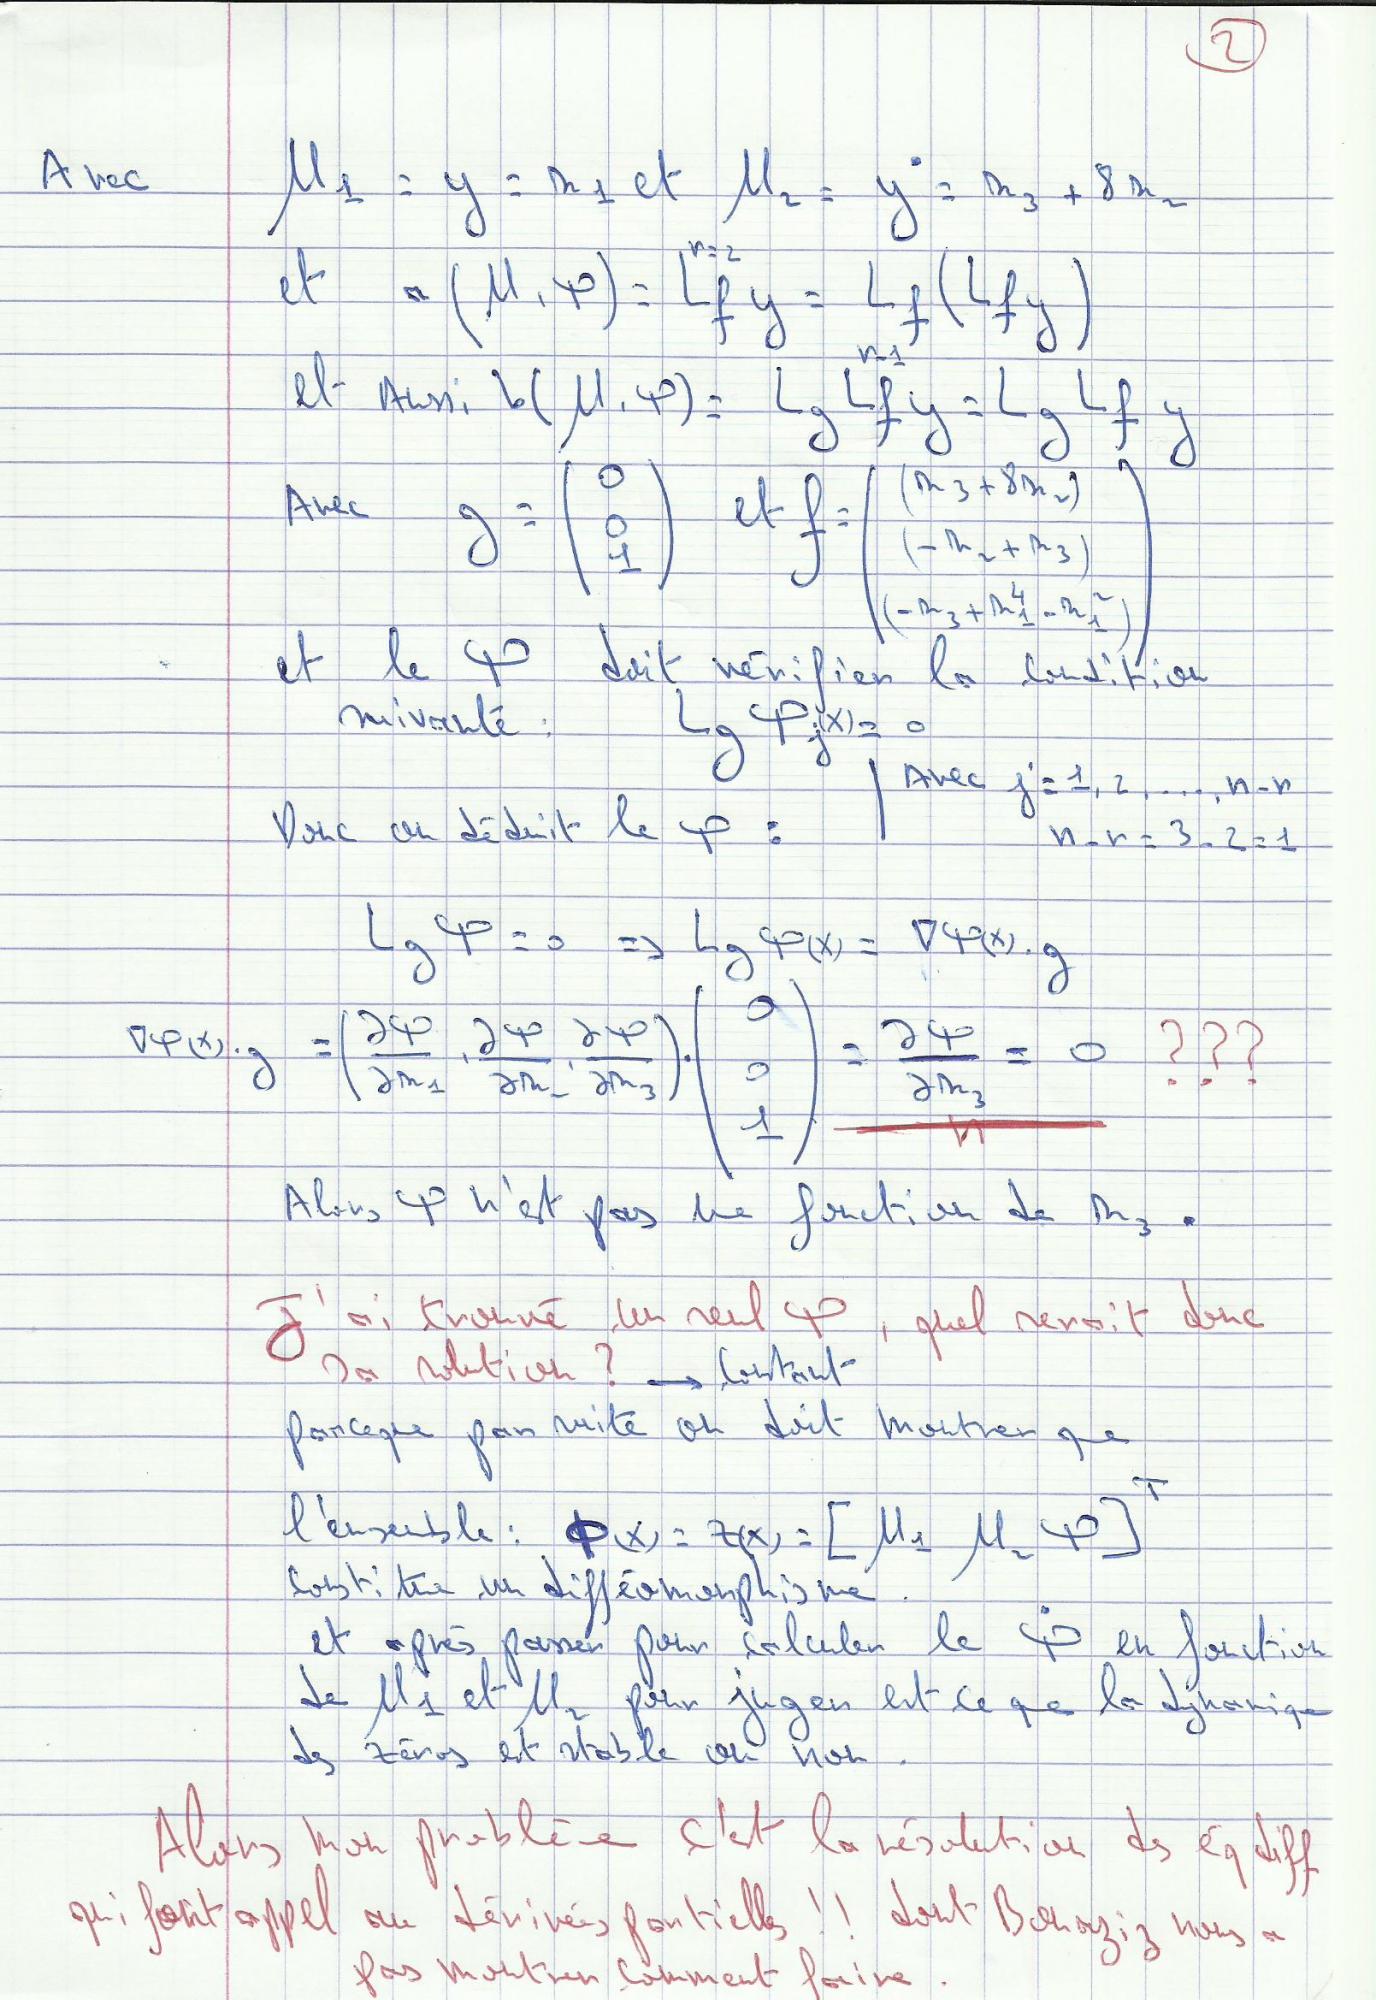 2
Avec μ1 = y = x1 et μ2 = ẏ = x3 + 8x2
et a(μ, φ) = Lf^{r=2} y = Lf(Lf y)
et aussi b(μ, φ) = Lg Lf^{r-1} y = Lg Lf y
Avec g = (0 0 1) et f = ((x3 + 8x2) (-x2 + x3) (-x3 + x1^4 - x1^2))
et le φ doit vérifier la condition
suivante : Lg φj(x) = 0
Avec j = 1, 2, ...., n-r
Donc on déduit le φ : n-r = 3-2 = 1
Lg φ = 0 => Lg φ(x) = ∇φ(x) . g
∇φ(x) . g = (∂φ/∂x1, ∂φ/∂x2, ∂φ/∂x3) . (0 0 1) = ∂φ/∂x3 = 0 ???
Alors φ n'est pas une fonction de x3.
J'ai trouvé un seul φ, quel serait donc
sa solution ? → constant
parceque par suite on doit montrer que
l'ensemble : Φ(x) = z(x) = [μ1 μ2 φ]^T
constitue un difféomorphisme.
et après passer pour calculer le φ̇ en fonction
de μ1 et μ2 pour juger est ce que la dynamique
des zéros est stable ou non.
Alors mon problème c'est la résolution des éq diff
qui font appel au dérivées partielles !! dont Bouaziz nous a
pas montrer comment faire.